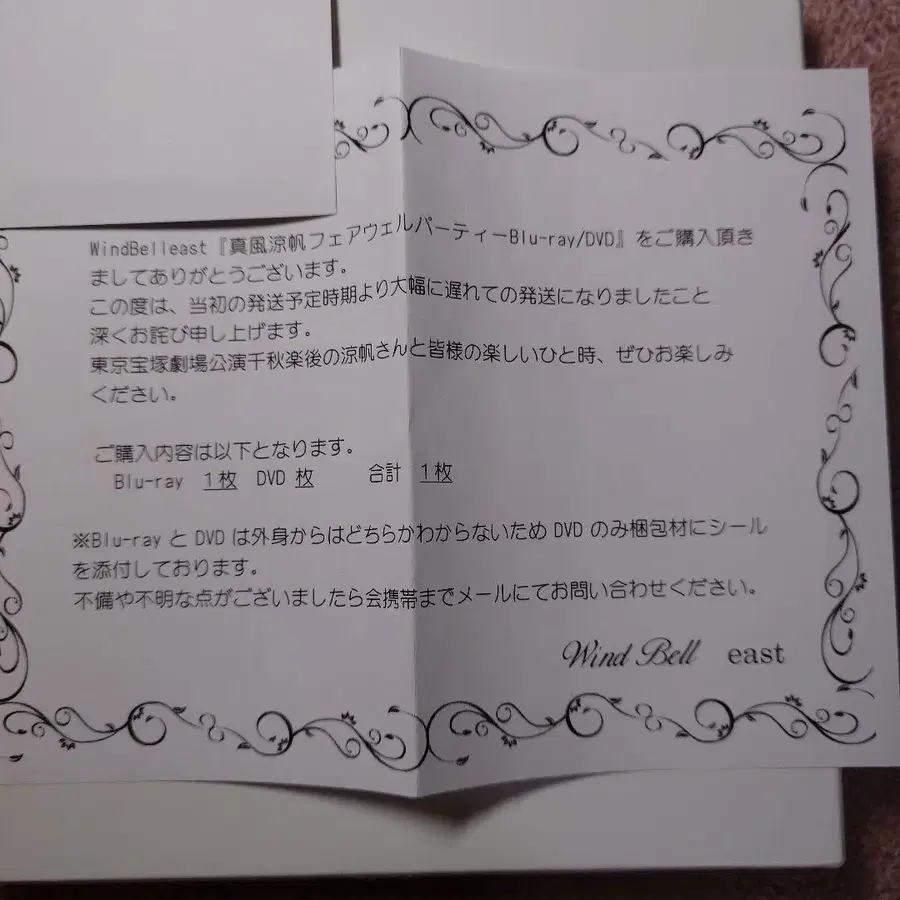 WindBelleast『真風涼帆フェアウェルパーティーBlu-ray/DVD』をご購入頂き
ましてありがとうございます。
この度は、当初の発送予定時期より大幅に遅れての発送になりましたこと
深くお詫び申し上げます。
東京宝塚劇場公演千秋楽後の涼帆さんと皆様の楽しいひと時、ぜひお楽しみ
ください。
ご購入内容は以下となります。
Blu-ray 1枚 DVD 枚 合計 1枚
※Blu-rayとDVDは外身からはどちらかわからないためDVDのみ梱包材にシール
を添付しております。
不備や不明な点がございましたら会携帯までメールにてお問い合わせください。
Wind Bell east